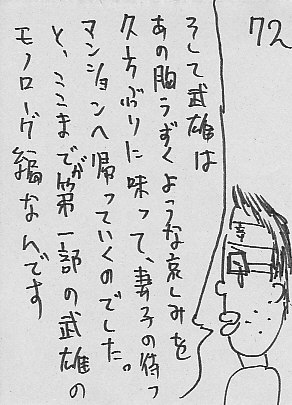 72
そして武雄は
あの胸うずくような哀しみを
久方ぶりに味って、妻子の待つ
マンションへ帰っていくのでした。
と、ここまでが第一部の武雄の
モノローグ編なんです